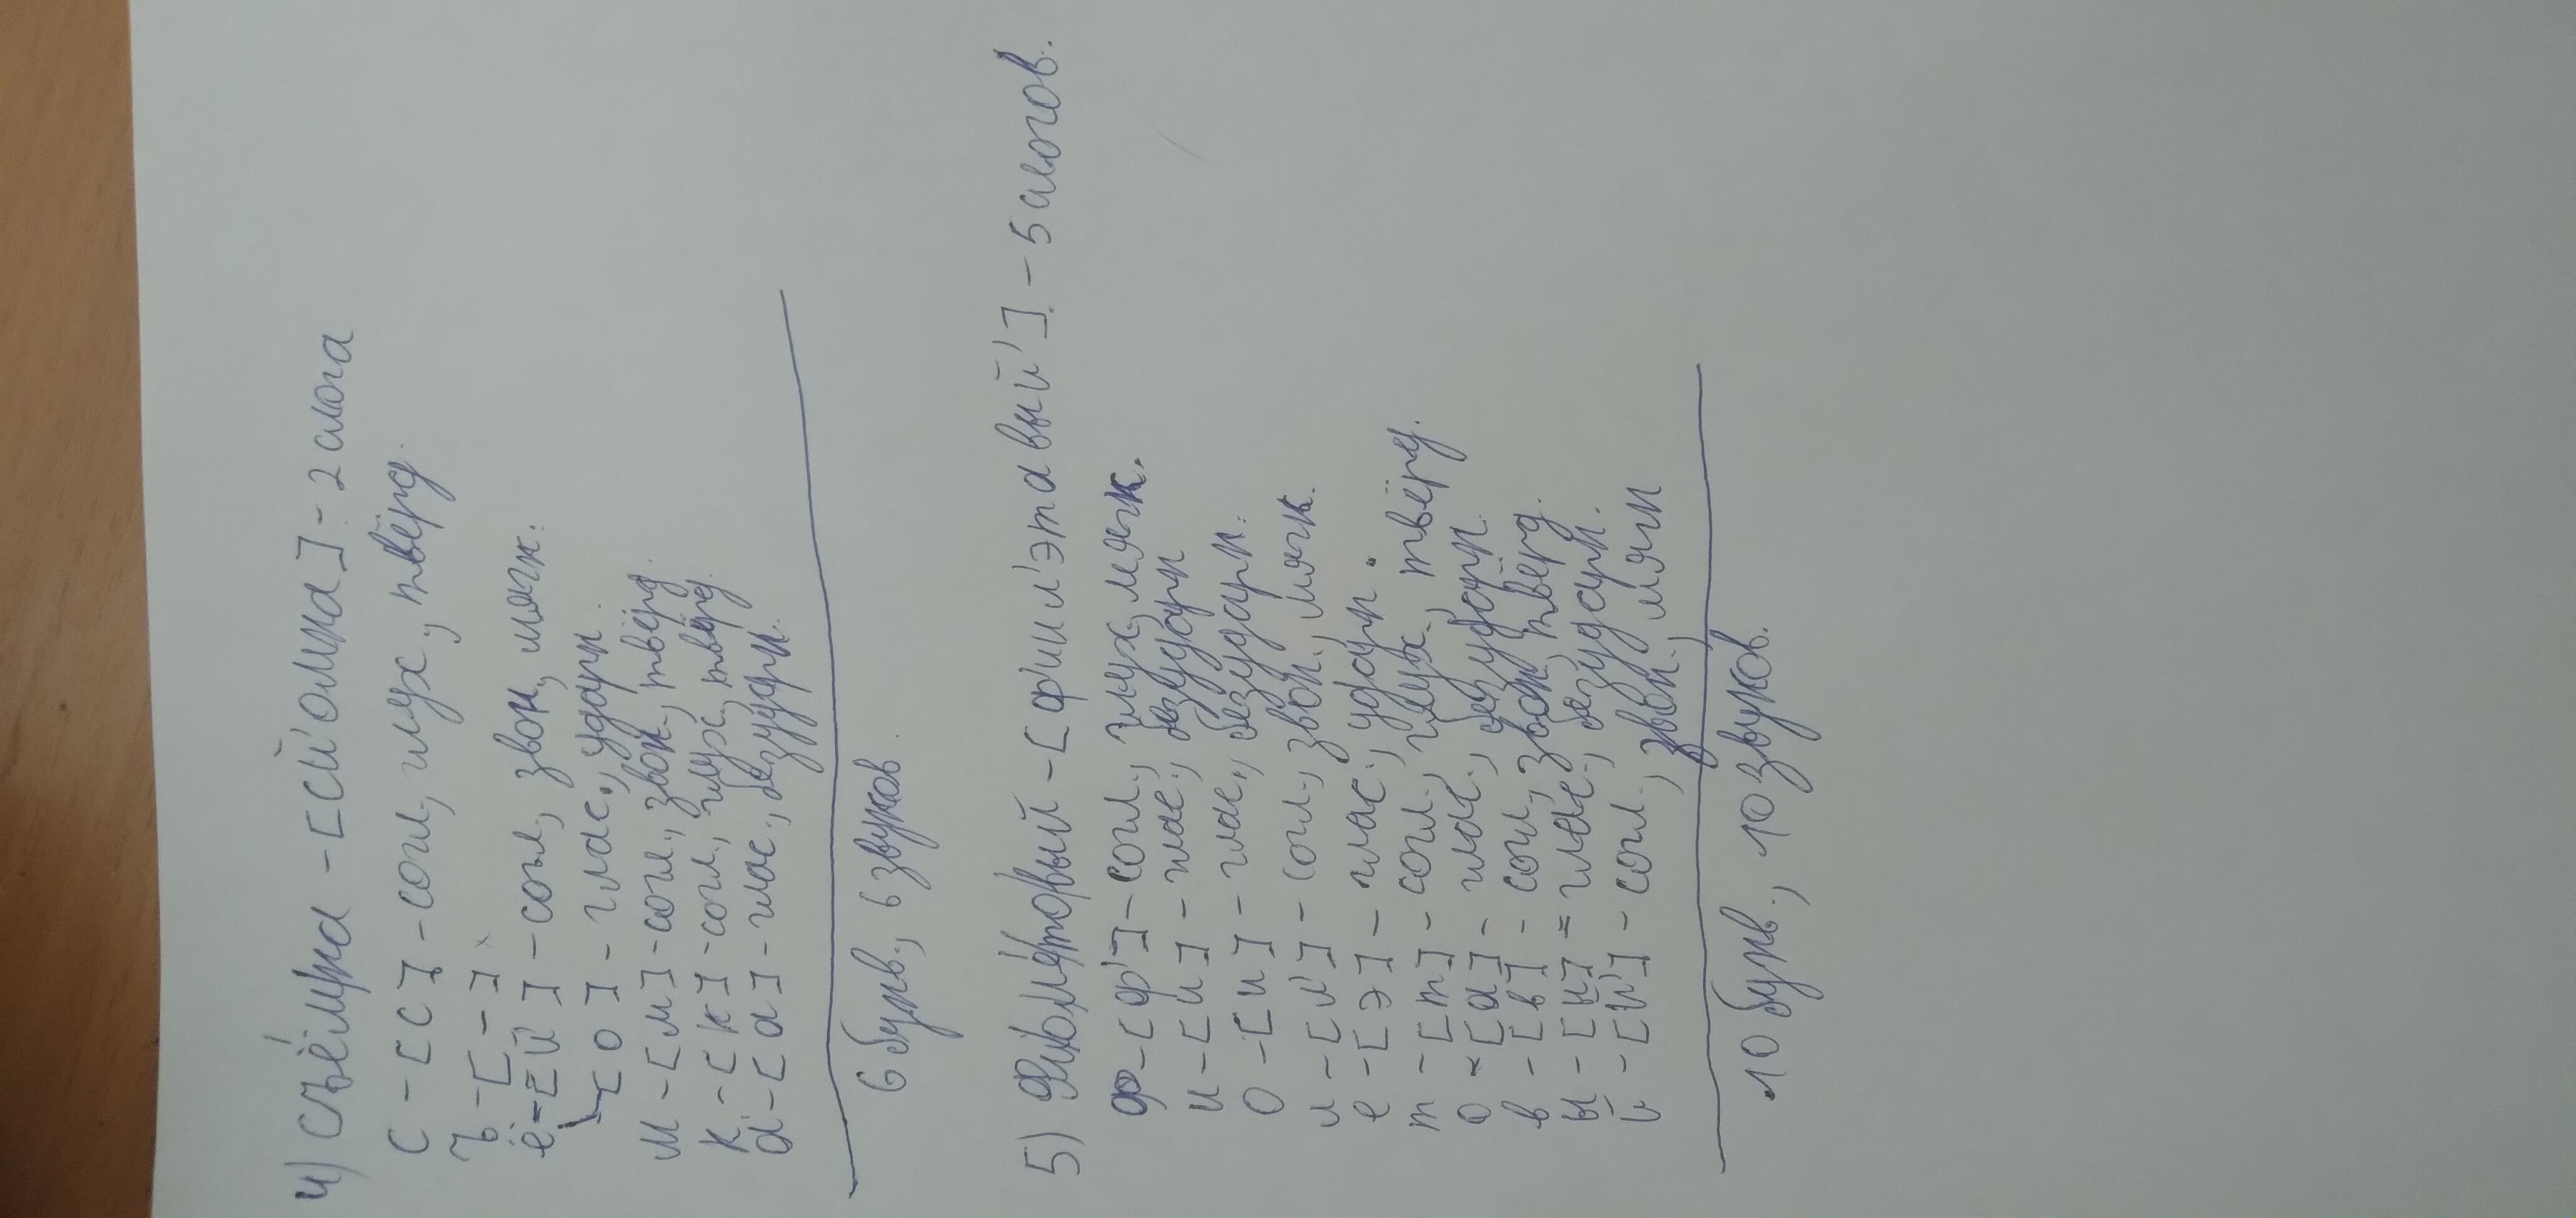 4) съёмка - [сй'омка] - 2 слога
с - [с] - согл., глух., твёрд.
ъ - [-]
ё - [й'] - согл., звон., мягк.
[о] - глас., ударн.
м - [м] - согл., звон., твёрд.
к - [к] - согл., глух., твёрд.
а - [а] - глас., безударн.
6 букв., 6 звуков.
5) Фиолетовый - [ф'иил'этавый'] - 5 слогов.
ф - [ф'] - согл., глух., мягк.
и - [и] - глас., безударн
о - [и] - глас., безударн.
л - [л'] - согл., звон., мягк.
е - [э] - глас., ударн.
т - [т] - согл., глух., твёрд.
о - [а] - глас., безударн.
в - [в] - согл., звон., твёрд.
ы - [ы] = глас., безударн.
й - [й'] - согл., звон., мягк
10 букв., 10 звуков.